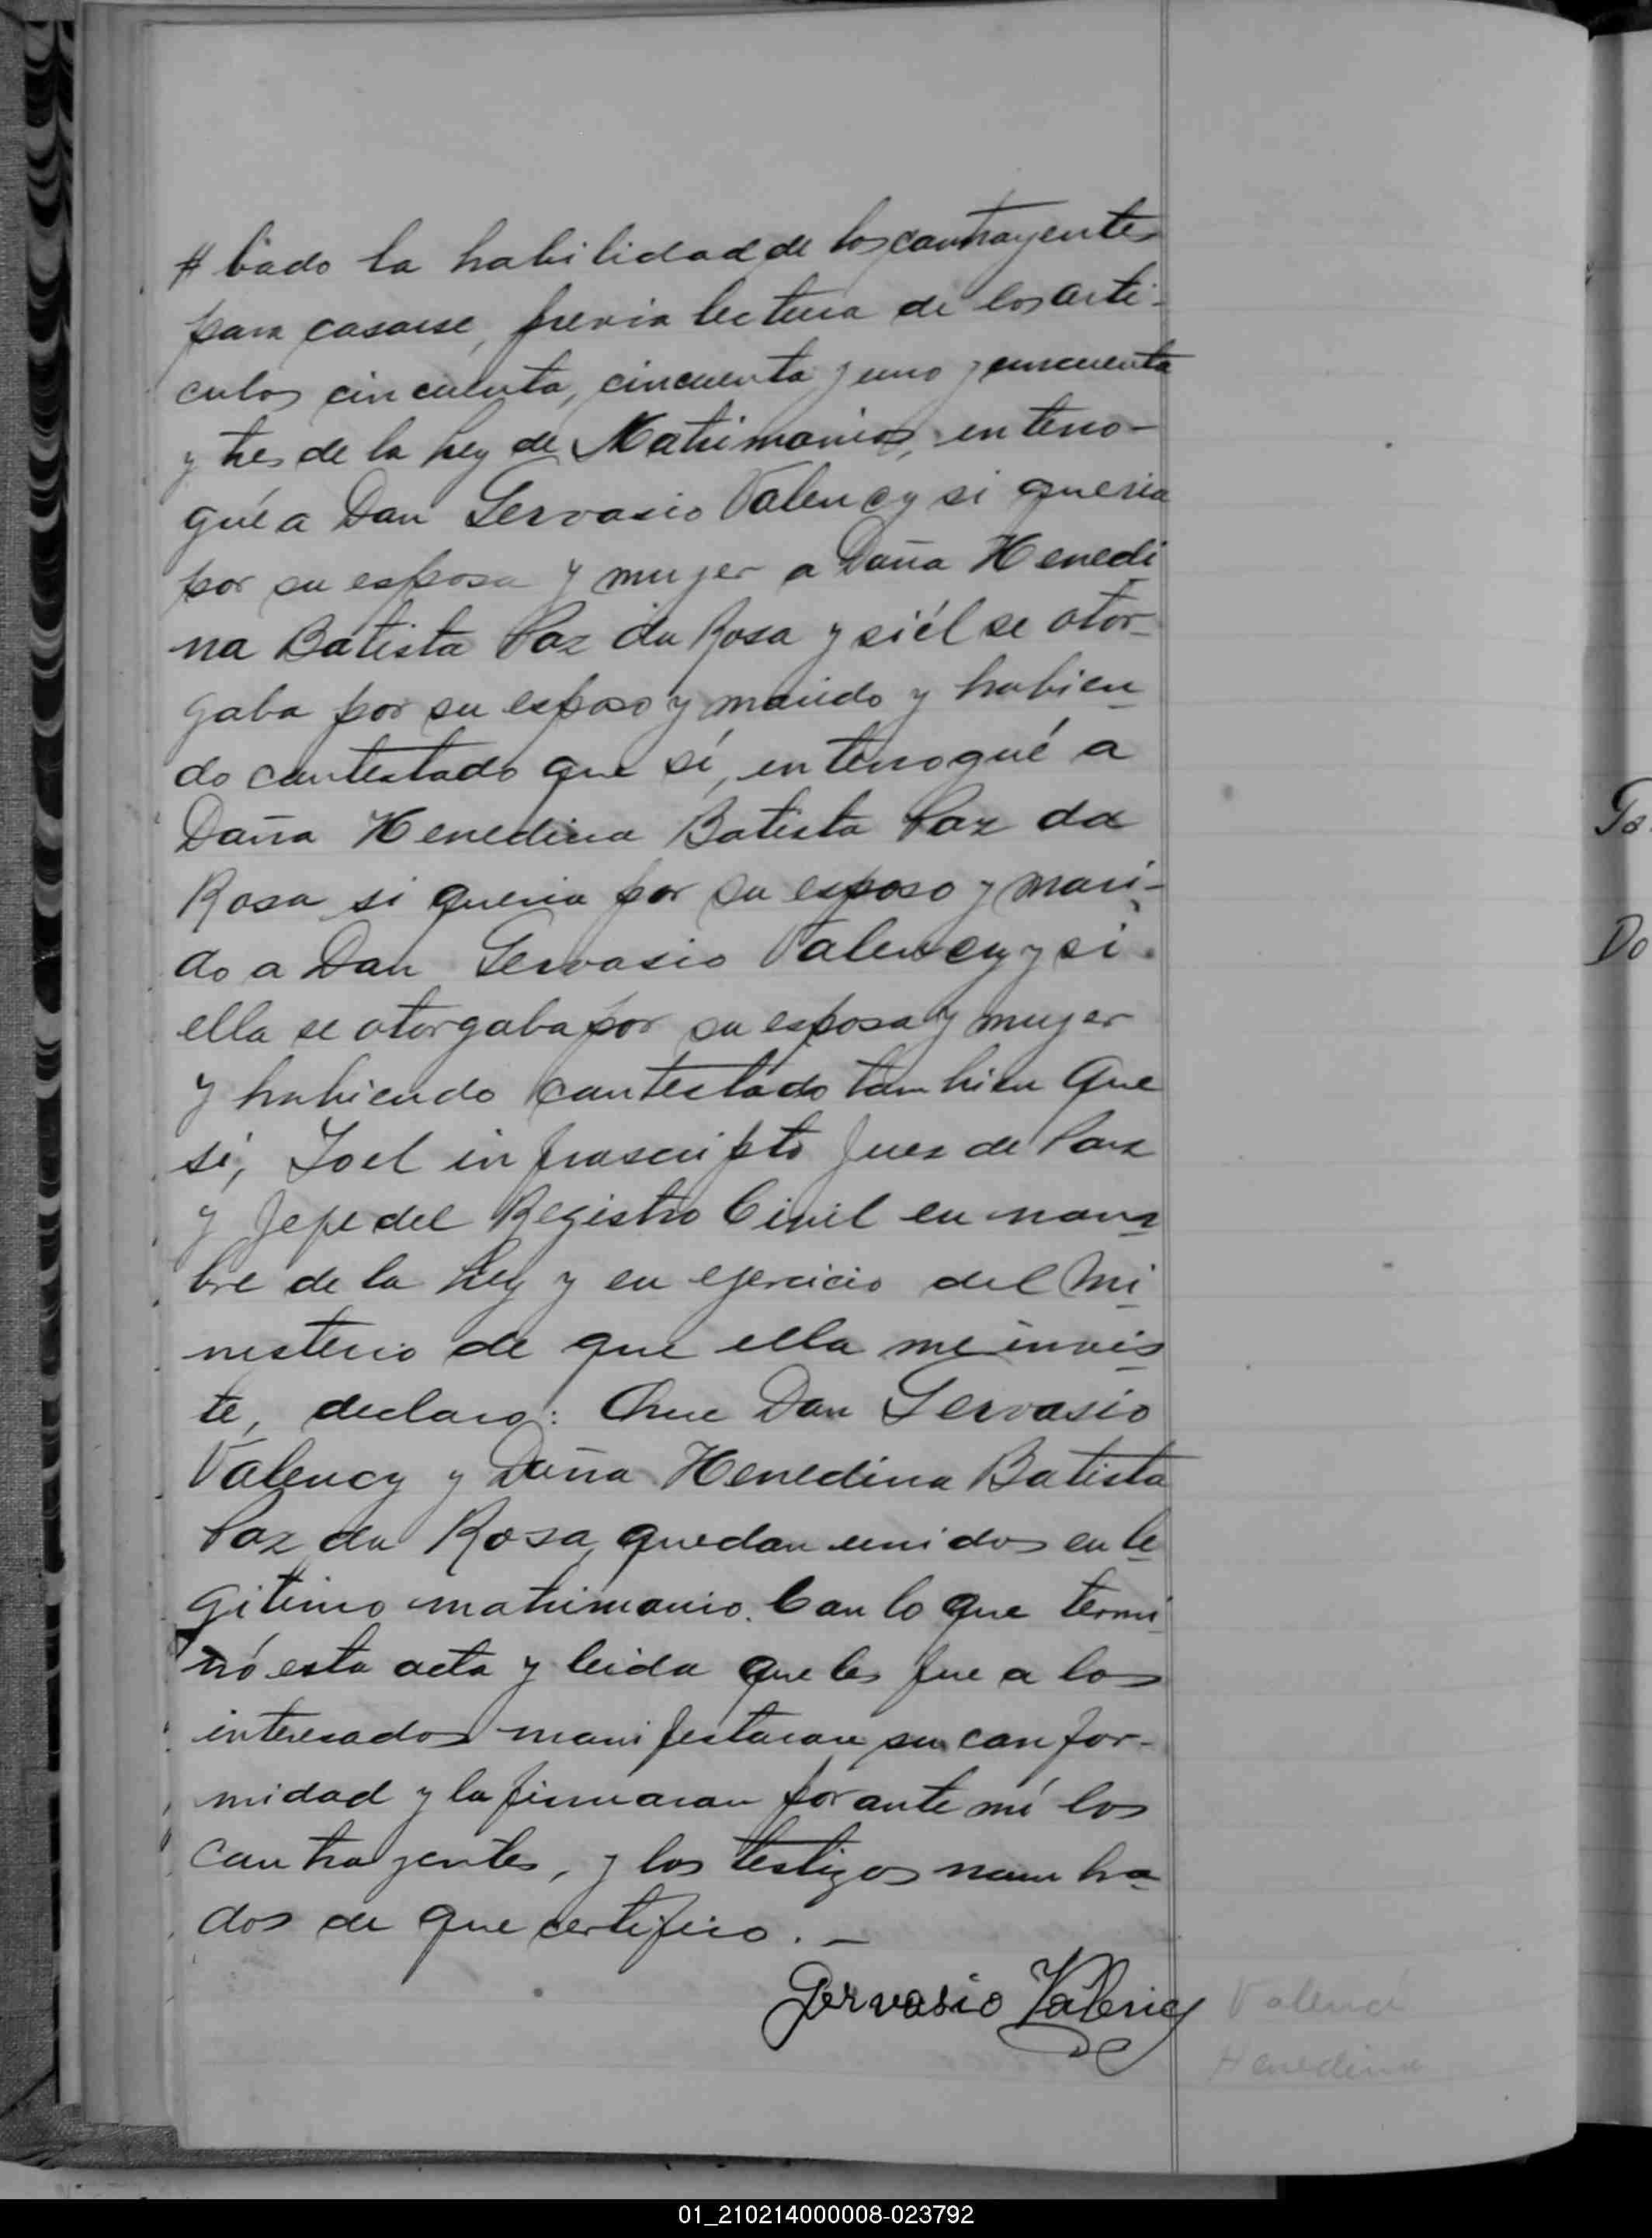 # bado la habilidad de los contrayentes
para casarse, previa lectura de los artí-
culos cincuenta, cincuenta y uno y cincuenta
y tres de la Ley de Matrimonios, interro-
gué a Don Gervasio Valency si queria
por su esposa y mujer a Doña Henedi
na Batista Paz da Rosa y si él se otor-
gaba por su esposo y marido y habien
do contestado que sí, interrogué a
Doña Henedina Batista Paz da
Rosa si queria por su esposo y mari-
do a Don Gervasio Valency y si
ella se otorgaba por su esposa y mujer
y habiendo contestado tambien que
sí, Yo el infrascripto Juez de Paz
y Jefe del Registro Civil en nom
bre de la Ley y en ejercicio del Mi
nisterio de que ella me invis
te, declaro: Que Don Gervasio
Valency y Doña Henedina Batista
Paz da Rosa, quedan unidos en le
gitimo matrimonio. Con lo que termi
nó esta acta y leida que les fue a los
interesados manifestaron su confor-
midad y la firmaron por ante mí los
contrayentes, y los testigos nombra
dos de que certifico. -
Gervasio Valency
Valenci
Henedina
Do
01_210214000008-023792